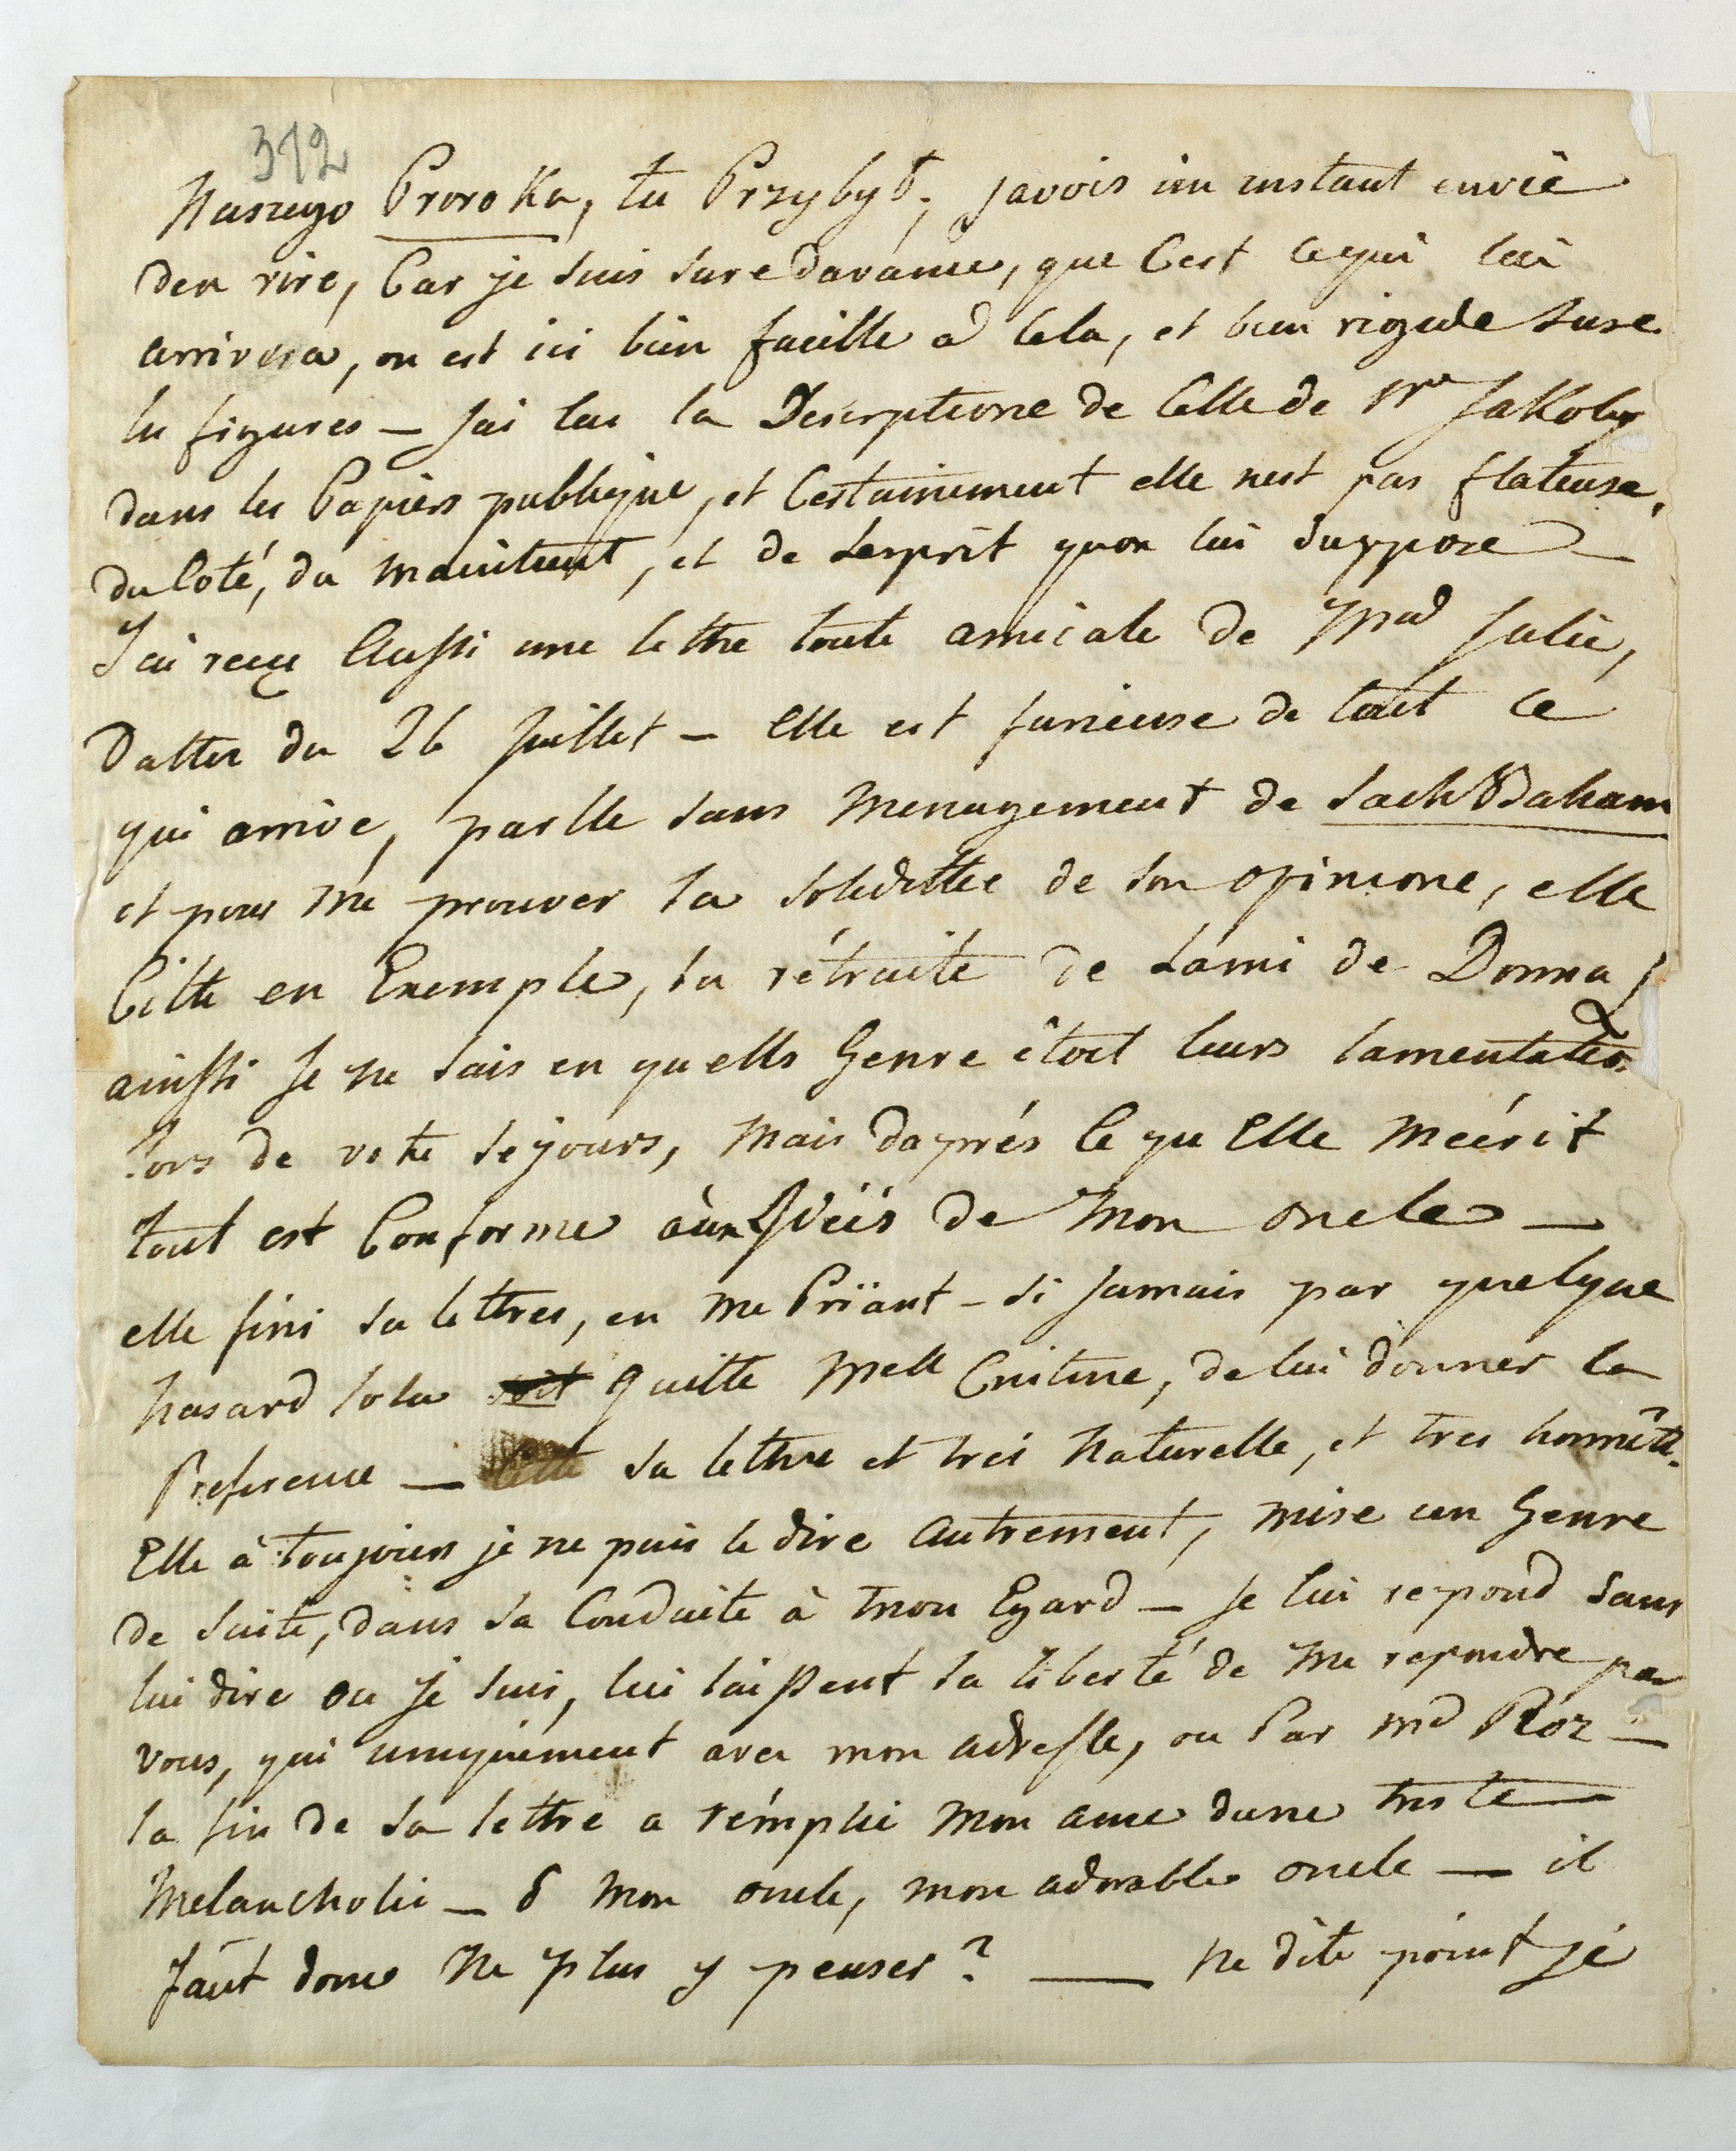 312
Naszego Proroka, tu Przybyt; javois un instant envie
den rire, Car je suis sure davance, que Cest ce qui lui
arrivera, on est ici bien facille a Cela, et bien rigide sure
les figures — jai lue la Descriptione de Celle de Mr Jakoby
dans les Papiers publique, et Certainement elle nest pas flateuse,
du Coté, du maintient, et de Lesprit quon lui suppose —
J'ai reçu Aussi une lettre toute amicale de Mad Julie,
Datter du 26 Juillet — elle est furieuse de tout ce
qui arrive, parlle sans Menagement de
et pour me prouver la soliditée de son opinione, elle
Citte en Exemple, la rétraite de Lami de Donna,
ainssi Je ne sais en quells Genre étoit leurs lamentation
lors de votre sejours, Mais daprés Ce qu Elle M'écrit
tout est Conforme aux de Mon oncle —
elle fini sa lettres, en me Priant — si jamais par quelque
hasard lola soit quitte Mell Cristine, de lui donner la
Preference — Cette sa lettre et trés Naturelle, et tres honnête.
Elle à toujours je ne puis le dire Autrement, mise un Genre
de suite, dans sa Conduite à mon Egard — Je lui repond sans
lui dire ou Je suis, lui laissent la liberté de me repondre par
vous, qui uniquement avez mon adresse, ou Par Md
la fin de sa lettre a rémplie Mon ame dune triste
Melancholie — ô Mon oncle, mon adorable oncle — il
faut donc Ne plus y penser? — Ne dite point je